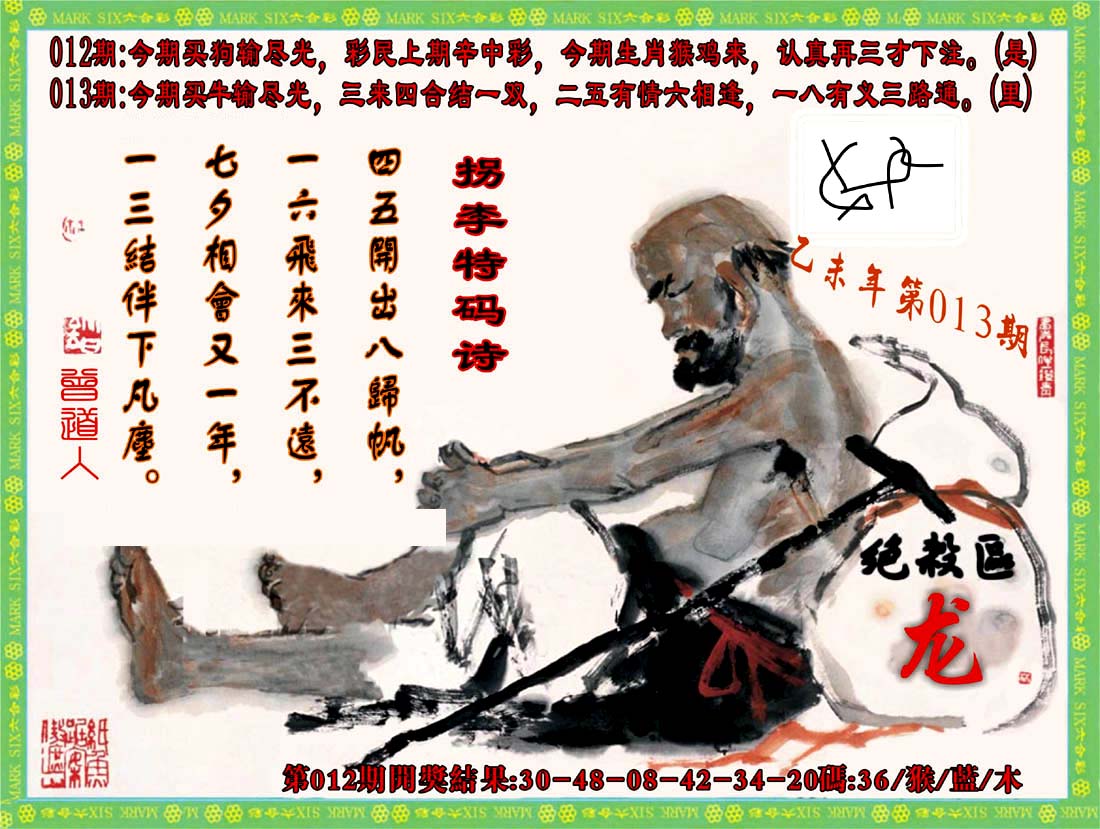 012期:今期买狗输尽光，彩民上期辛中彩，今期生肖猴鸡来，认真再三才下注。(是)
013期:今期买牛输尽光，三来四合结一双，二五有情六相逢，一八有义三路通。(里)
拐李特码诗
四五開出八歸帆，
一六飛來三不遠，
七夕相會又一年，
一三結伴下凡塵。
曾道人
乙未年第013期
绝殺區
龙
第012期開獎結果:30-48-08-42-34-20碼:36/猴/藍/木
MARK SIX六合彩